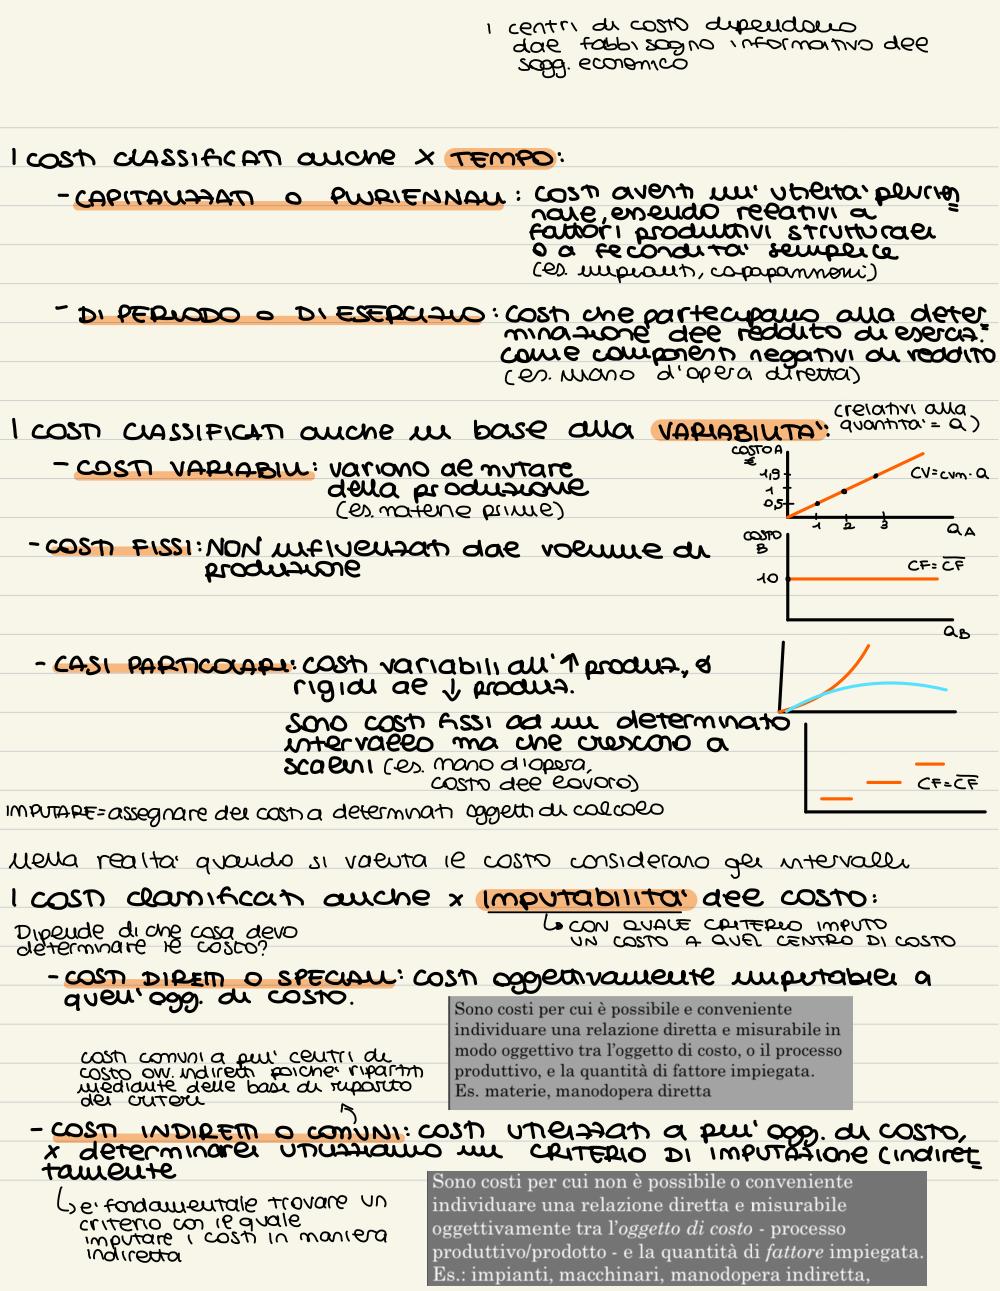 i centri di costo dipendono
dal fabbisogno informativo del
sogg. economico
I COSTI CLASSIFICATI anche x TEMPO:
- CAPITALIZZATI O PLURIENNALI: costi aventi un' utilità plurien
nale, essendo relativi a
fattori produttivi strutturali
o a fecondità semplice
(es. impianti, capapannoni)
- DI PERIODO O DI ESERCIZIO: costi che partecipano alla deter
minazione del reddito di eserciz.
come componenti negativi di reddito
(es. mano d'opera diretta)
I COSTI CLASSIFICATI anche in base alla VARIABILITA': (relativi alla
quantità = Q)
- COSTI VARIABILI: variano al mutare
della produzione
(es. materie prime)
COSTO A
€
1,5
1
0,5
1 2 3
CV=cvm·Q
QA
- COSTI FISSI: NON influenzati dal volume di
produzione
COSTO
B
10
CF=CF
QB
- CASI PARTICOLARI: costi variabili all'↑ produz., o
rigidi al ↓ produz.
sono costi fissi ad un determinato
intervallo ma che crescono a
scalini (es. mano d'opera,
costo del lavoro)
CF=CF
IMPUTARE = assegnare dei costi a determinati oggetti di calcolo
nella realtà quando si valuta il costo considerano gli intervalli
I COSTI classificati anche x imputabilità del costo:
↳ CON QUALE CRITERIO IMPUTO
UN COSTO A QUEL CENTRO DI COSTO
Dipende di che cosa devo
determinare il costo?
- COSTI DIRETTI O SPECIALI: costi oggettivamente imputabili a
quell' ogg. di costo.
Sono costi per cui è possibile e conveniente
individuare una relazione diretta e misurabile in
modo oggettivo tra l'oggetto di costo, o il processo
produttivo, e la quantità di fattore impiegata.
Es. materie, manodopera diretta
costi comuni a più centri di
costo ovv. indiretti poiché ripartiti
mediante delle basi di riparto
dei criteri
- COSTI INDIRETTI O COMUNI: costi utilizzati a più ogg. di costo,
x determinarli utilizziamo un CRITERIO DI IMPUTAZIONE (indiret
tamente
↳ è fondamentale trovare un
criterio con il quale
imputare i costi in maniera
indiretta
Sono costi per cui non è possibile o conveniente
individuare una relazione diretta e misurabile
oggettivamente tra l'oggetto di costo - processo
produttivo/prodotto - e la quantità di fattore impiegata.
Es.: impianti, macchinari, manodopera indiretta,